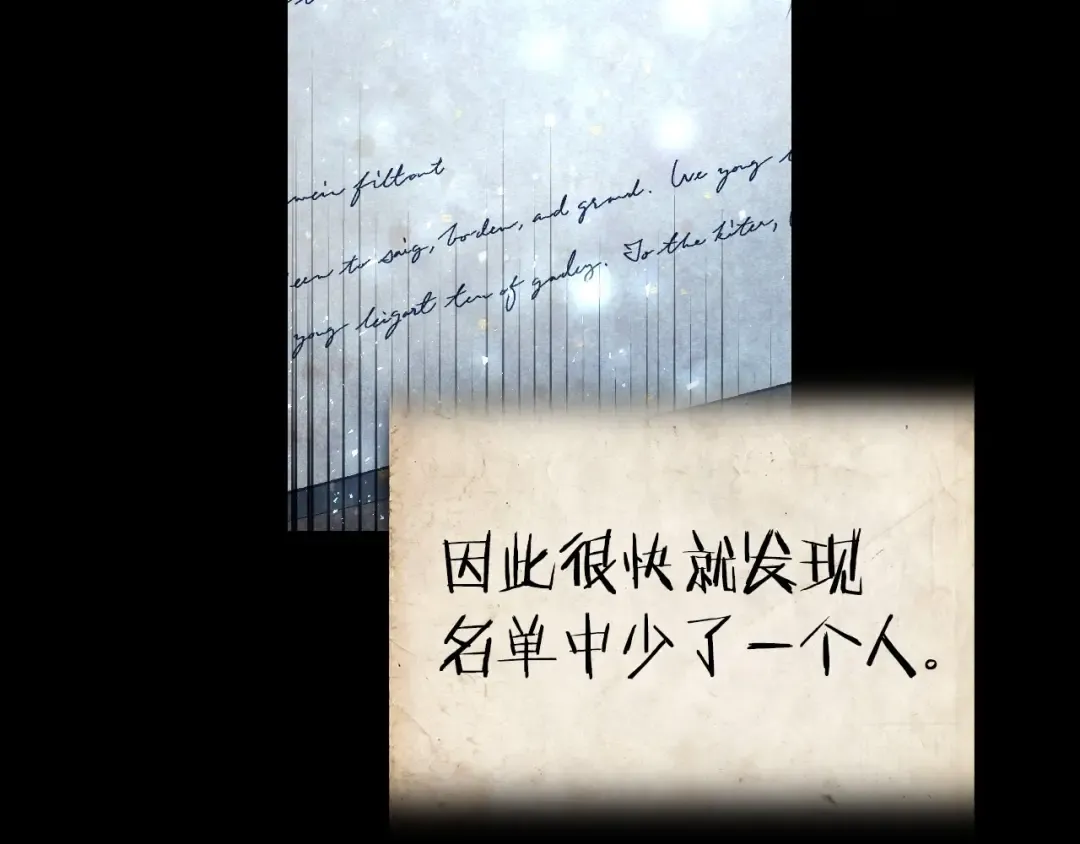 filtout
to saig, boden, and grand. We yong
yong leigart ten of gadey. To the kiter,
因此很快就发现
名单中少了一个人。